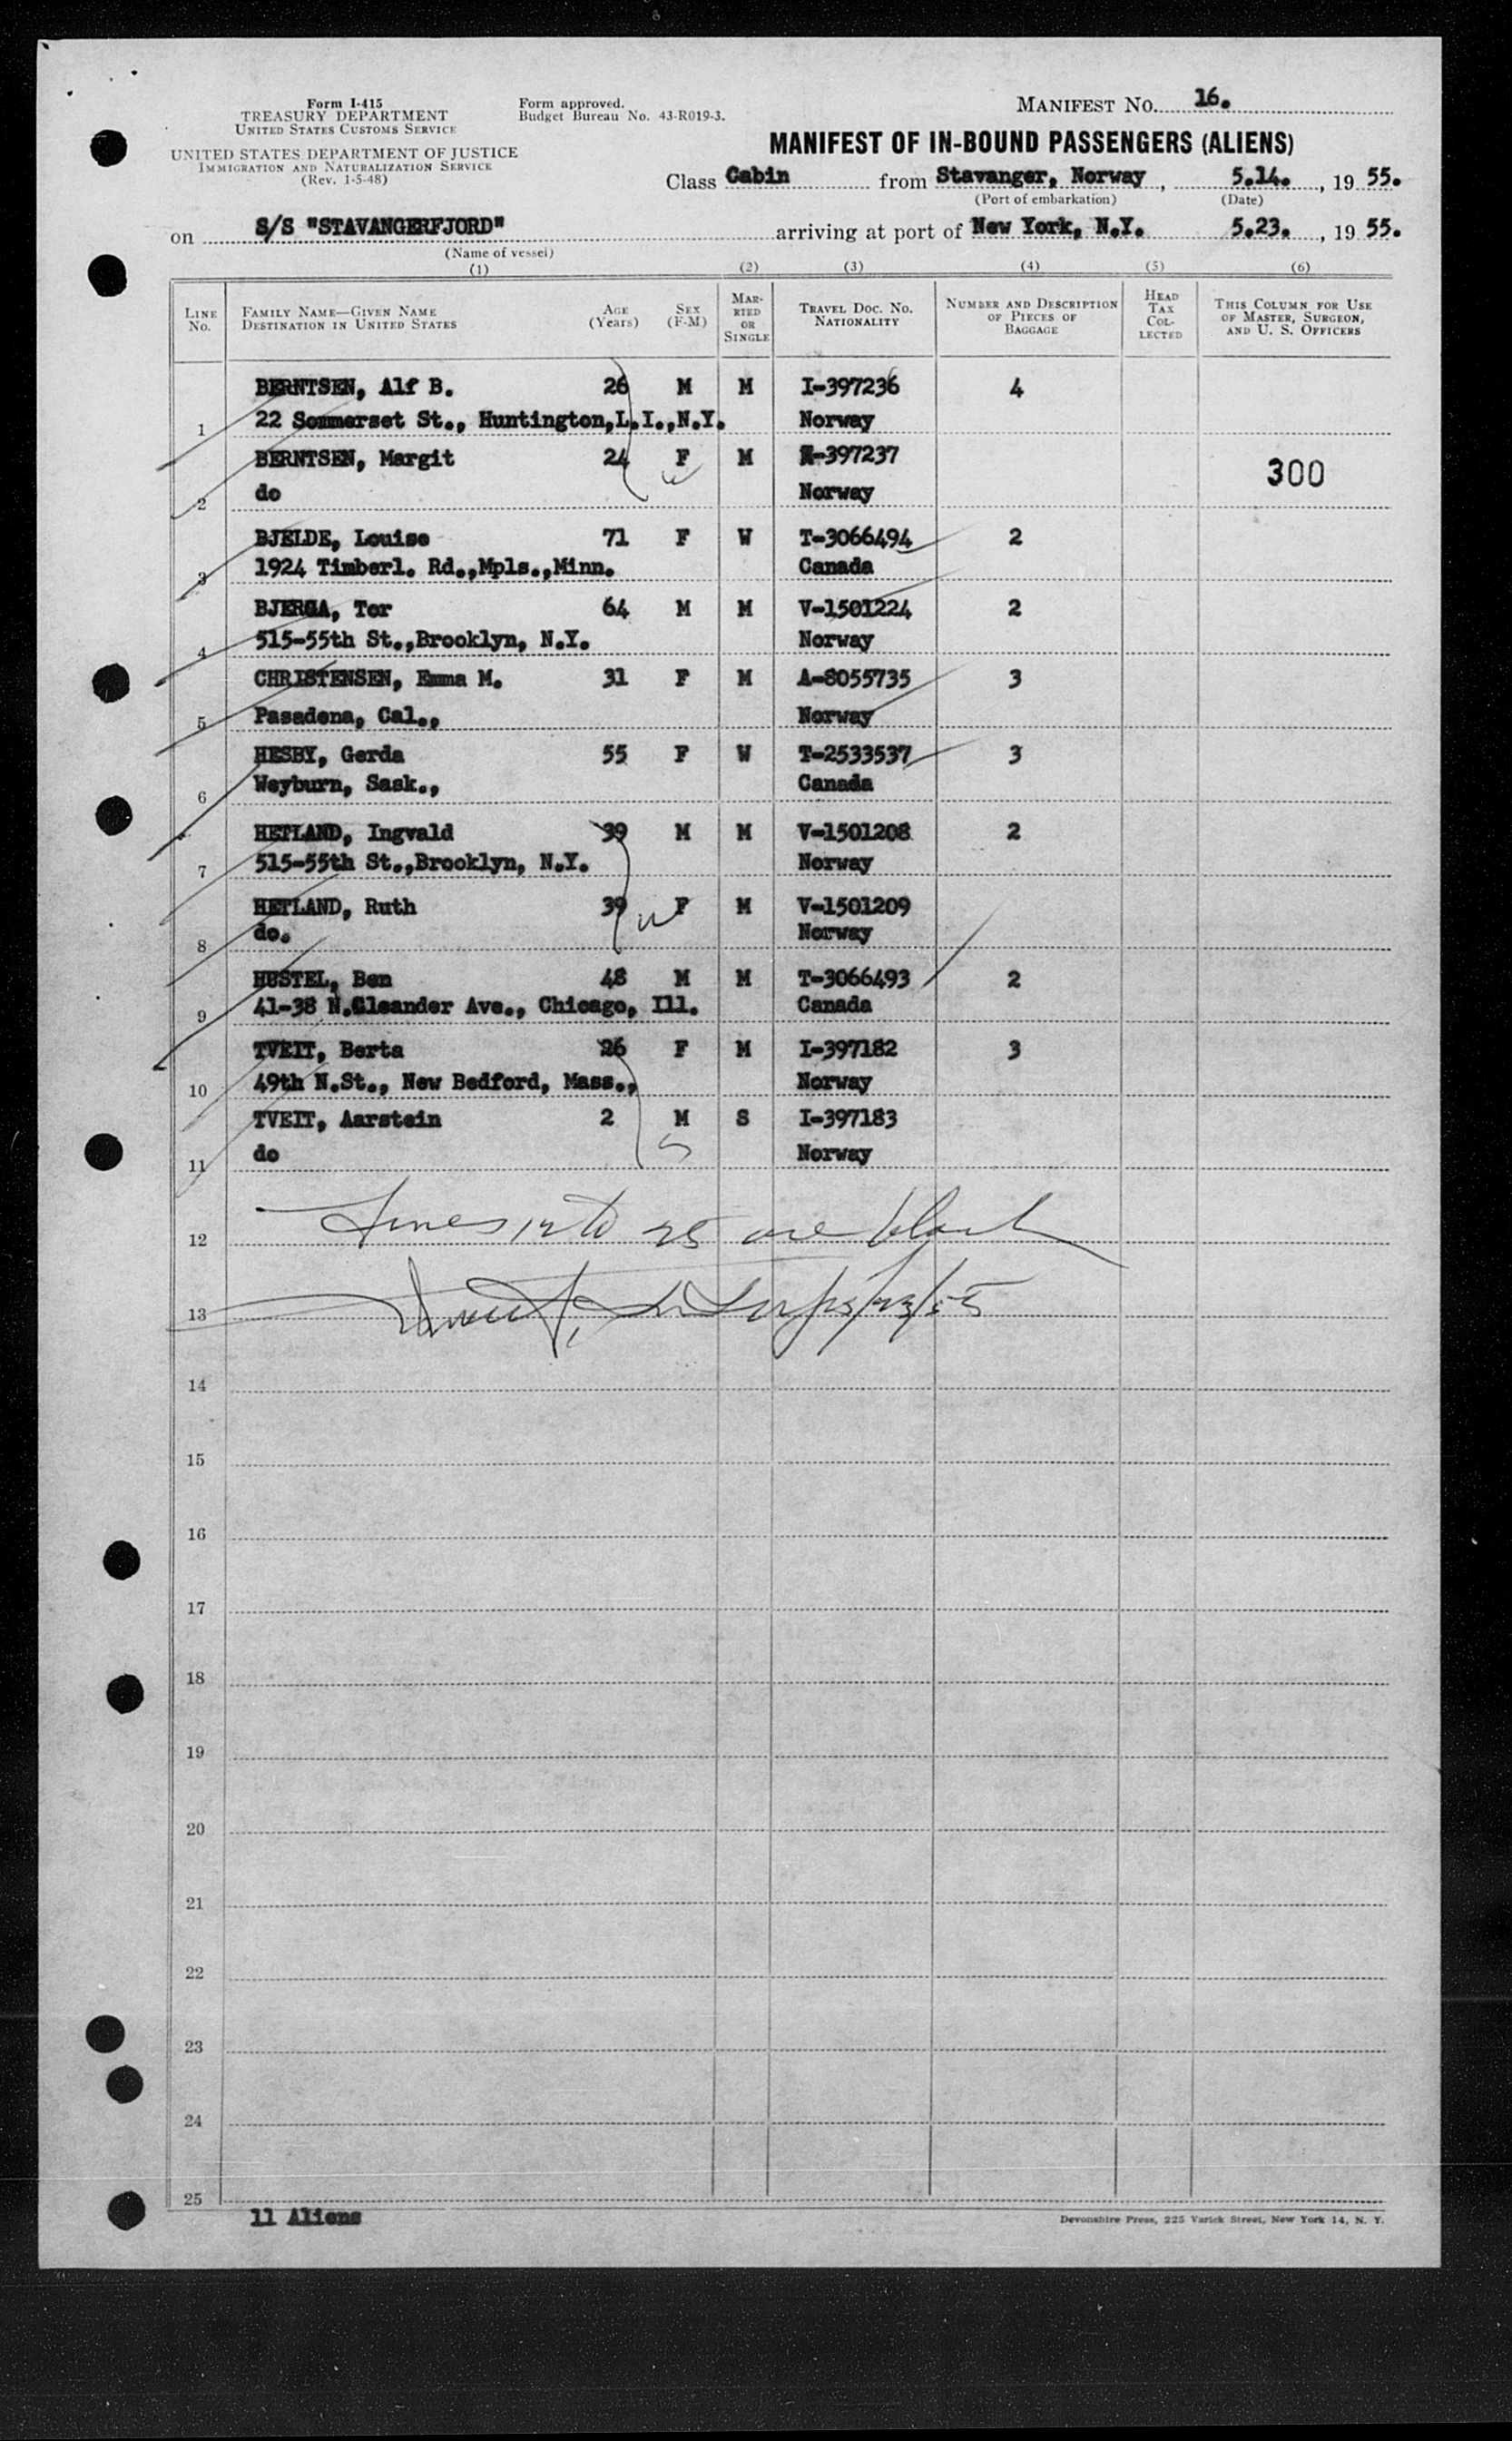 Form I-415
TREASURY DEPARTMENT
UNITED STATES CUSTOMS SERVICE
UNITED STATES DEPARTMENT OF JUSTICE
IMMIGRATION AND NATURALIZATION SERVICE
(Rev. 1-5-48)
Form approved.
Budget Bureau No. 43-R019-3.
MANIFEST NO. 16.
MANIFEST OF IN-BOUND PASSENGERS (ALIENS)
Class Cabin from Stavanger, Norway, 5.14., 19 55.
(Port of embarkation) (Date)
on S/S "STAVANGERFJORD" arriving at port of New York, N.Y. 5.23., 19 55.
(Name of vessel)
(1) (2) (3) (4) (5) (6)
LINE No. FAMILY NAME—GIVEN NAME DESTINATION IN UNITED STATES AGE (Years) SEX (F-M) MARRIED OR SINGLE TRAVEL DOC. NO. NATIONALITY NUMBER AND DESCRIPTION OF PIECES OF BAGGAGE HEAD TAX COLLECTED THIS COLUMN FOR USE OF MASTER, SURGEON, AND U. S. OFFICERS
BERNTSEN, Alf B. 26 M M I-397236 4
1 22 Sommerset St., Huntington,L.I.,N.Y. Norway
BERNTSEN, Margit 24 F M -397237 300
2 do Norway
BJELDE, Louise 71 F W T-3066494 2
3 1924 Timberl. Rd.,Mpls.,Minn. Canada
BJERGA, Tor 64 M M V-1501224 2
4 515-55th St.,Brooklyn, N.Y. Norway
CHRISTENSEN, Emma M. 31 F M A-8055735 3
5 Pasadena, Cal., Norway
HESBY, Gerda 55 F W T-2533537 3
6 Weyburn, Sask., Canada
HETLAND, Ingvald 39 M M V-1501208 2
7 515-55th St.,Brooklyn, N.Y. Norway
HETLAND, Ruth 39 F M V-1501209
8 do. Norway
HUSTEL, Ben 48 M M T-3066493 2
9 41-38 N.Gleander Ave., Chicago, Ill. Canada
TVEIT, Berta 26 F M I-397182 3
10 49th N.St., New Bedford, Mass., Norway
TVEIT, Aarstein 2 M S I-397183
11 do Norway
12 Lines 12 to 25 are blank
13 5/23/55
14
15
16
17
18
19
20
21
22
23
24
25
11 Aliens
Devonshire Press, 225 Varick Street, New York 14, N. Y.